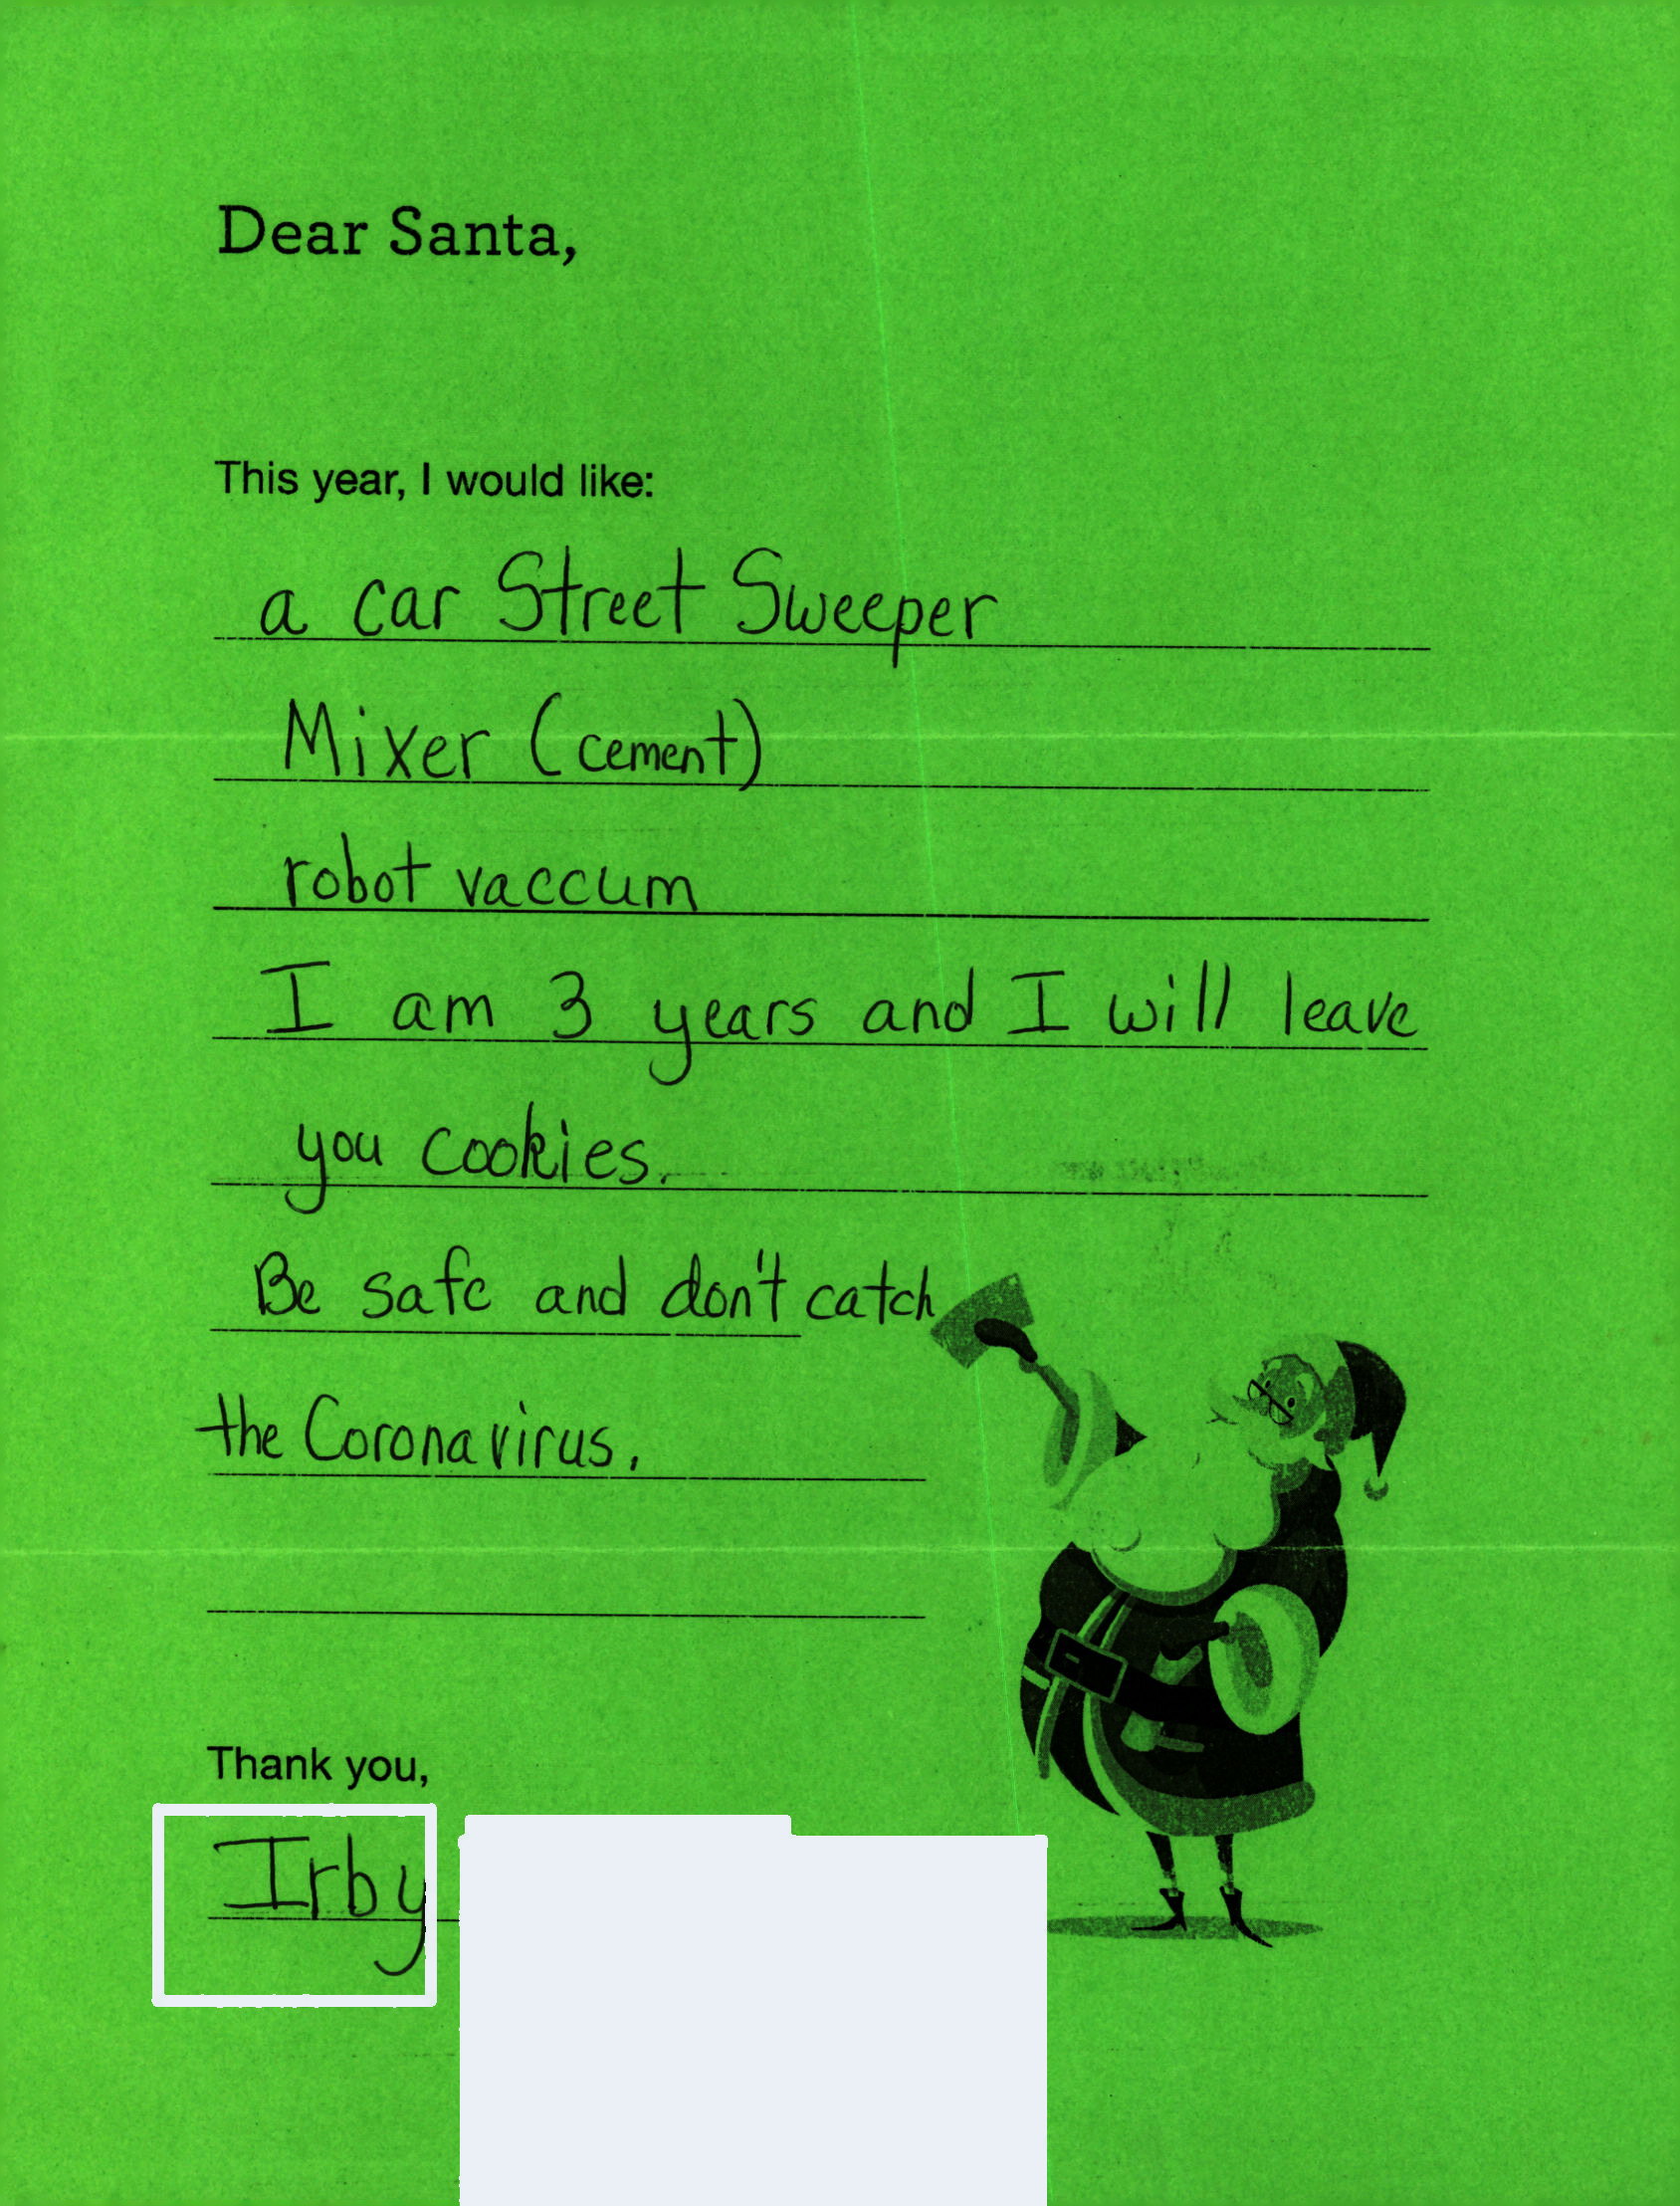 Dear Santa,
This year, I would like:
a car Street Sweeper
Mixer (cement)
robot vaccum
I am 3 years and I will leave
you cookies.
Be safe and don't catch
the Coronavirus.
Thank you,
Irby